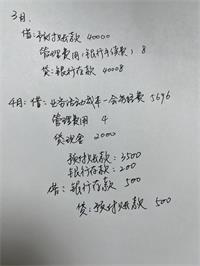 3月:
借:预付账款 40000
管理费用(银行手续费) 8
贷:银行存款 40008
4月:借:业务活动成本一会务经费 5696
管理费用 4
贷现金 2000
预付账款:3500
银行存款:200
借:银行存款 500
贷:预付账款 500